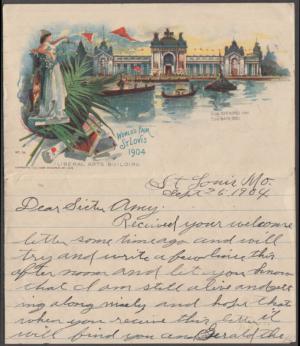 WORLD'S FAIR
ST. LOUIS
1904
LIBERAL ARTS BUILDING
St Louis Mo.
Sept 25, 1904
Dear Sister Amey:
Received your welcome
letter some time ago and will
try and write a few lines this
after noon and let you know
that I am still alive and get
ting along nicely and hope that
when you receive this letter it
will find you and Gerald the